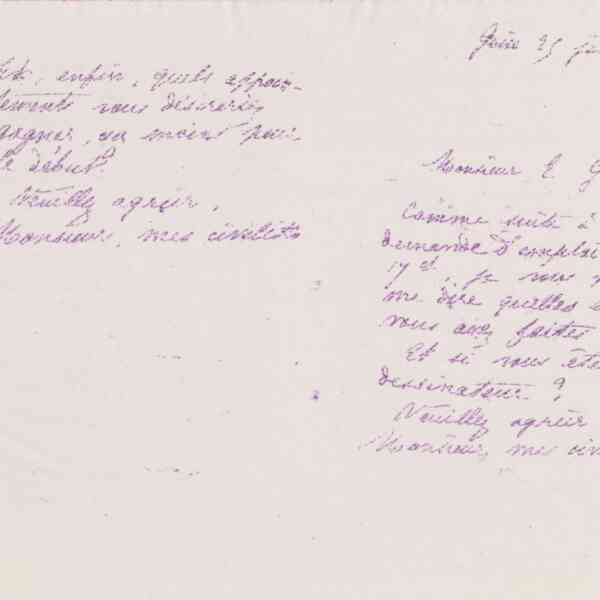 Et, enfin, quels appoin-
tements vous désireriez
gagner, au moins pour
le début.
Veuillez agréer,
Monsieur, mes civilités
25
Monsieur E. G
Comme suite à
demande d'emploi
17 ct, je vous
me dire quelles
vous avez faites
Et si vous êtes
dessinateur ?
Veuillez agréer
Monsieur, mes civ